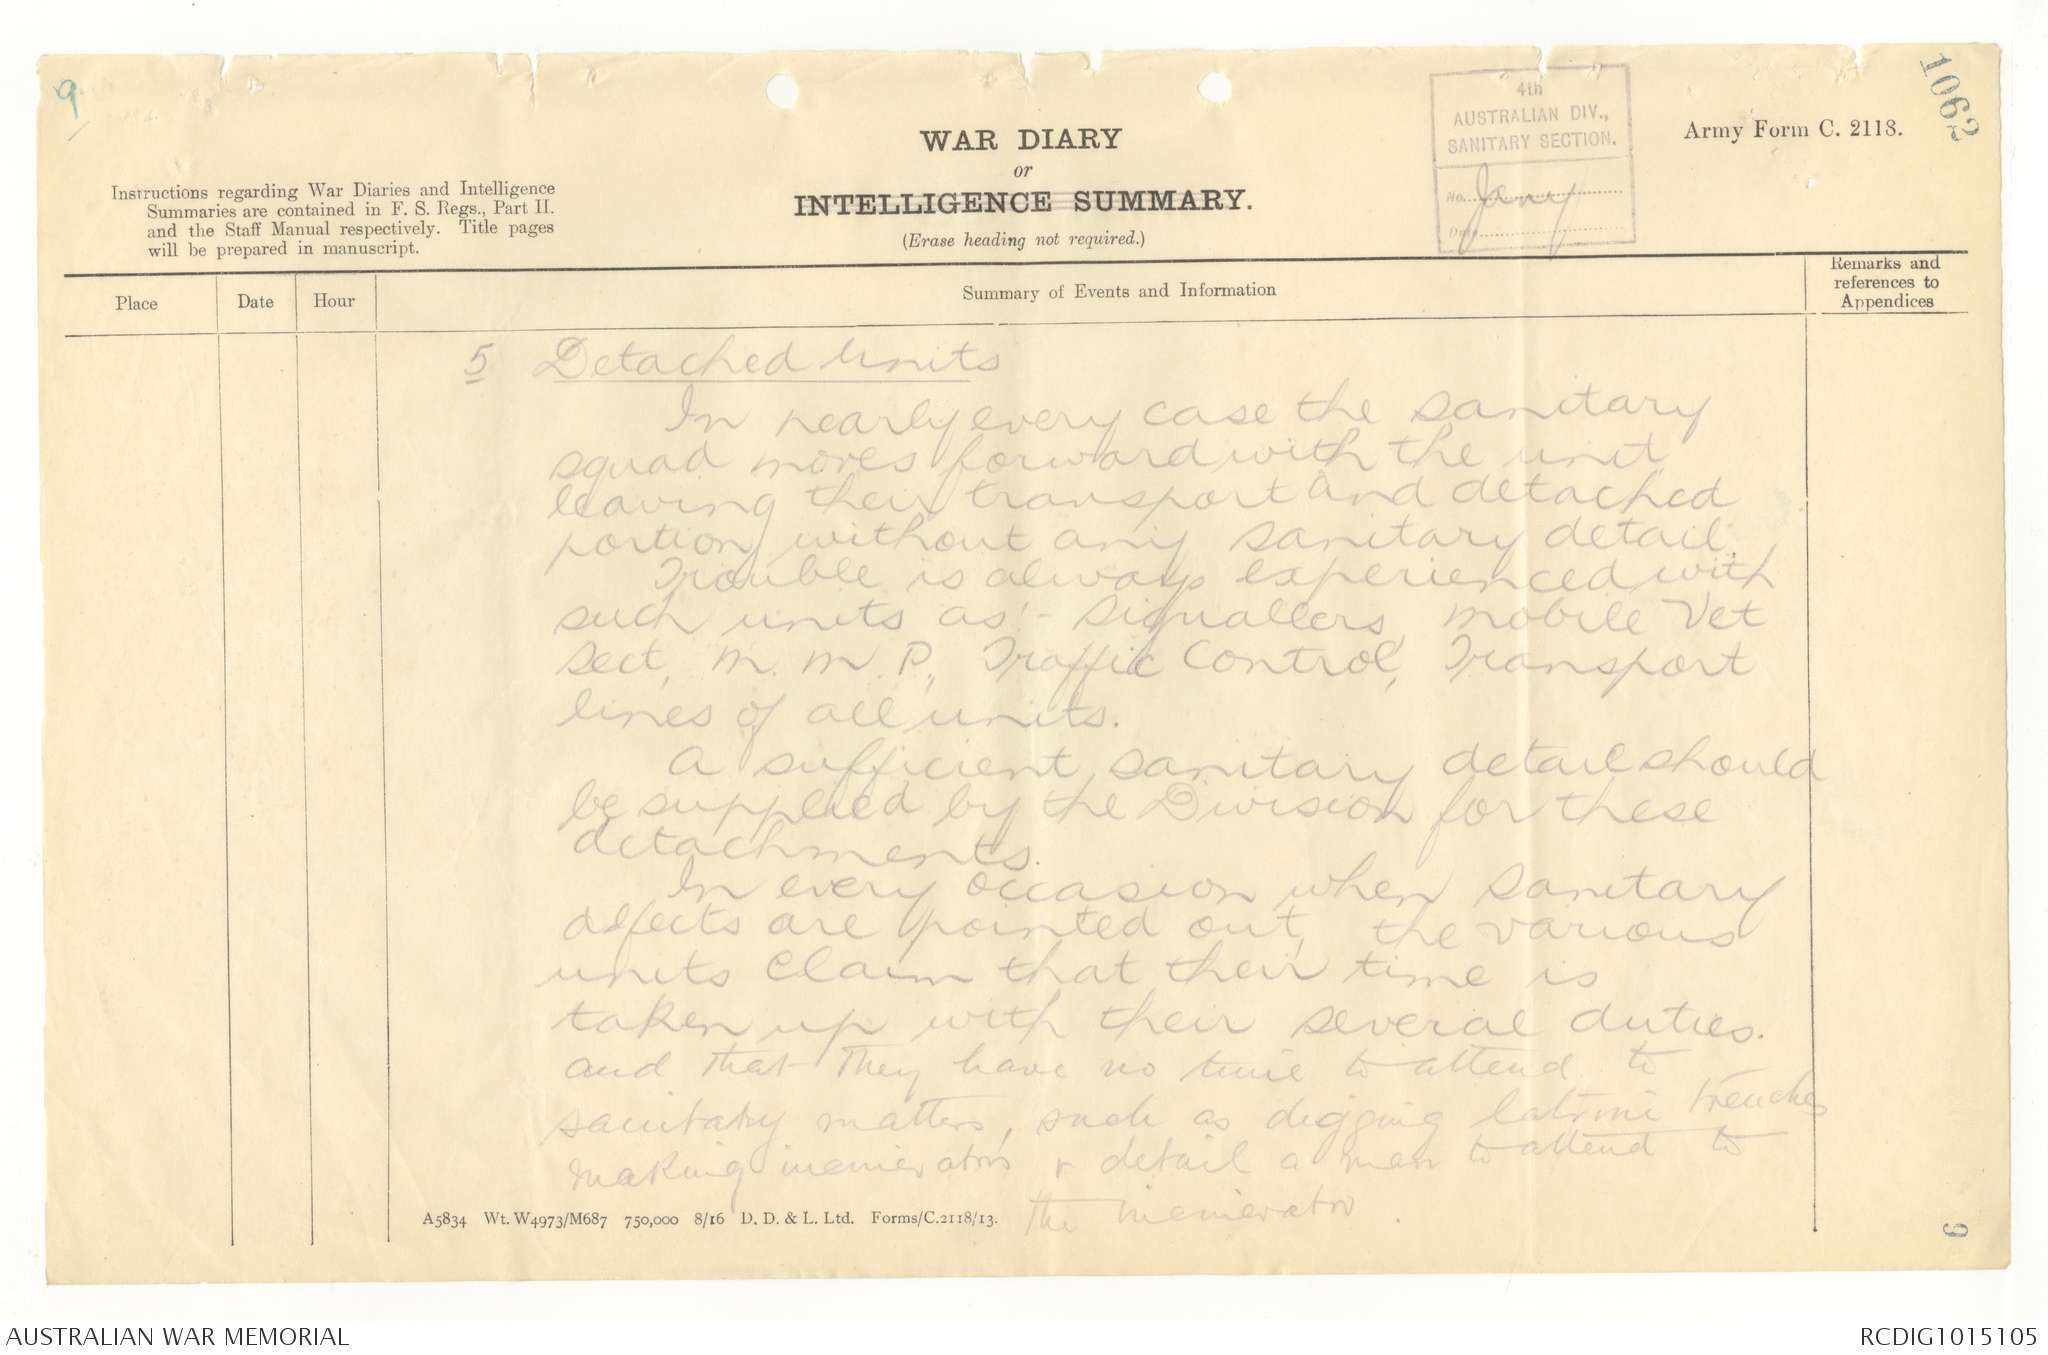 9
1062
4th
AUSTRALIAN DIV.,
SANITARY SECTION.
No. Jany
Date
Army Form C. 2118.
WAR DIARY
or
INTELLIGENCE SUMMARY.
(Erase heading not required.)
Instructions regarding War Diaries and Intelligence
Summaries are contained in F. S. Regs., Part II.
and the Staff Manual respectively. Title pages
will be prepared in manuscript.
Place
Date
Hour
Summary of Events and Information
Remarks and
references to
Appendices
5 Detached Units
In nearly every case the sanitary
squad moves forward with the unit
leaving their transport and detached
portion, without any sanitary detail.
Trouble is always experienced with
such units as:- Signallers, Mobile Vet
Sect, M. M. P., Traffic Control, Transport
lines of all units.
A sufficient sanitary detail should
be supplied by the Division for these
detachments.
In every occasion when sanitary
defects are pointed out, the various
units claim that their time is
taken up with their several duties.
and that they have no time to attend to
sanitary matters, such as digging latrine trenches
making incinerators & detail a man to attend to
the incinerator.
A5834 Wt. W4973/M687 750,000 8/16 D. D. & L. Ltd. Forms/C.2118/13.
9
AUSTRALIAN WAR MEMORIAL
RCDIG1015105